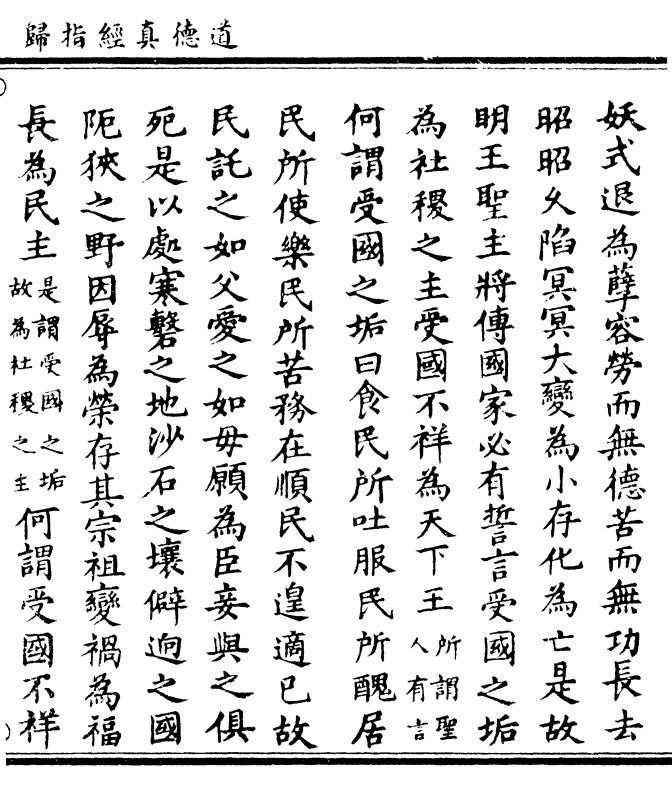 道德真經指歸
妖式退為孽容勞而無德苦而無功長去
昭昭久陷冥冥大變為小存化為亡是故
明王聖主將傳國家必有誓言受國之垢
為社稷之主受國不祥為天下王所謂聖人有言
何謂受國之垢曰食民所吐服民所醜居
民所使樂民所苦務在順民不遑適已故
民託之如父愛之如毋願為臣妾與之俱
死是以處寒磬之地沙石之壤僻逈之國
阨狹之野因辱為榮存其宗祖變禍為福
長為民主是謂受國之垢故為社稷之主何謂受國不祥